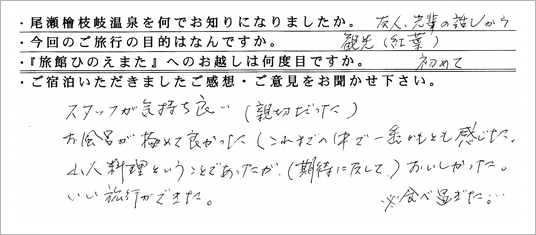 ・尾瀬檜枝岐温泉を何でお知りになりましたか。 友人、先輩の話しから
・今回のご旅行の目的はなんですか。 観光(紅葉)
・『旅館ひのえまた』へのお越しは何度目ですか。 初めて
・ご宿泊いただきましたご感想・ご意見をお聞かせ下さい。
スタッフが気持ち良い (親切だった)
お風呂が極めて良かった(これまでの中で一番かもとも感じた。
山人料理ということであったが、(期待に反して)おいしかった。
いい旅行ができた。 ※食べ過ぎた…